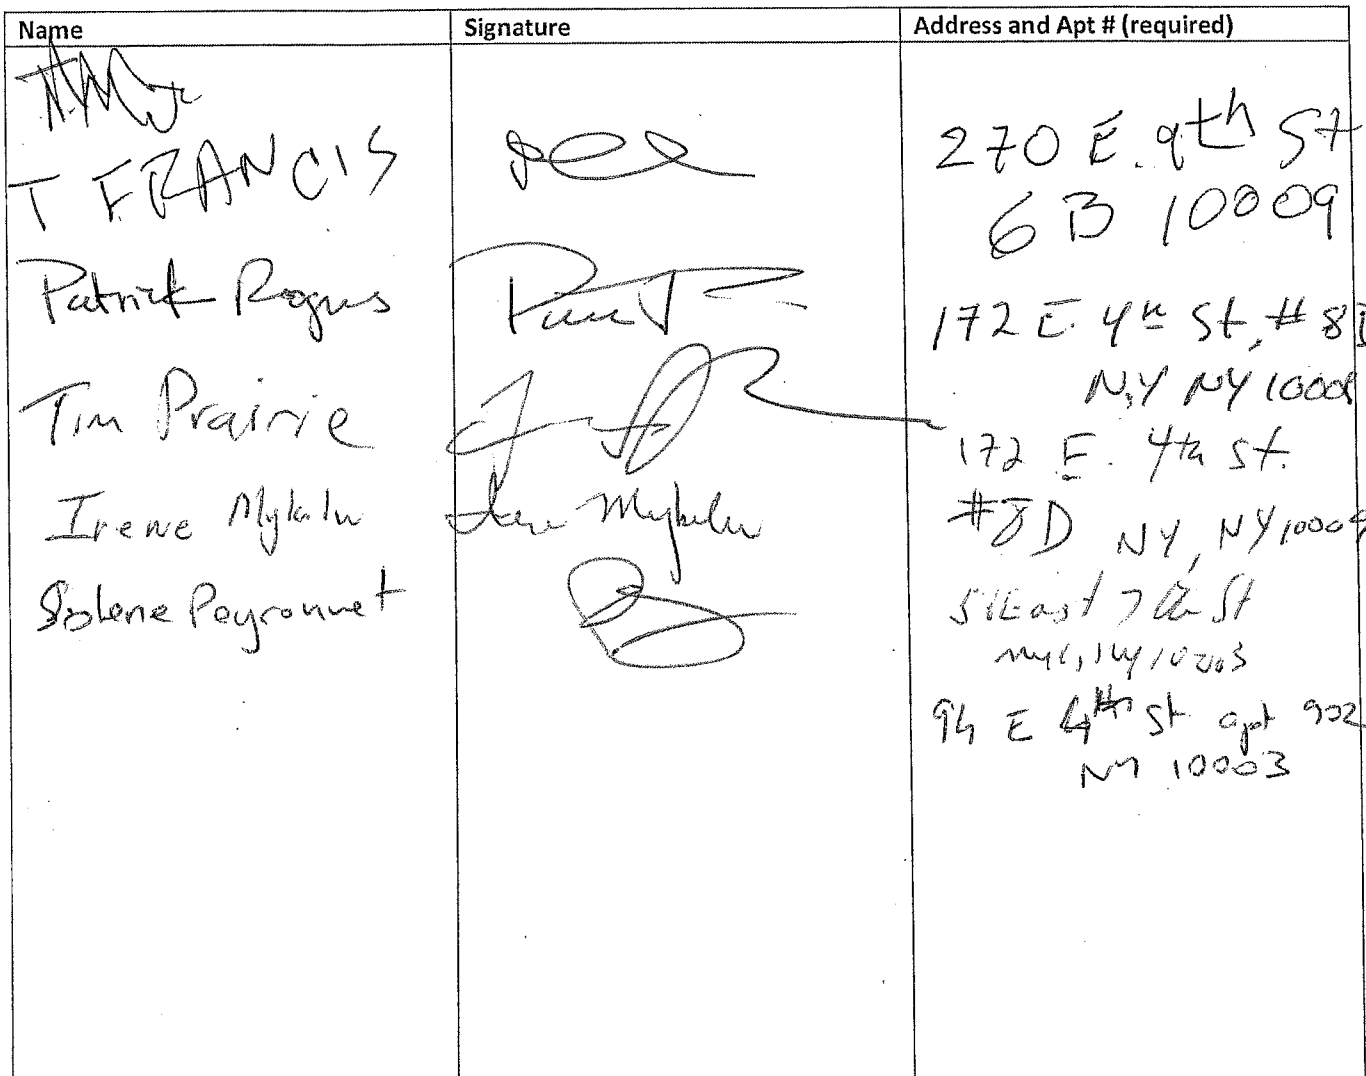 Name Signature Address and Apt # (required)
T FRANCIS
270 E. 9th St
6B 10009
Patrick Rogus
172 E 4th St, # 8D
N.Y NY 10009
Tim Prairie
172 E. 4th St.
#8D NY, NY 10009
Irene
51 East 7th St
NYC, NY 10003
Solene Peyronnet
94 E 4th St apt 902
NY 10003